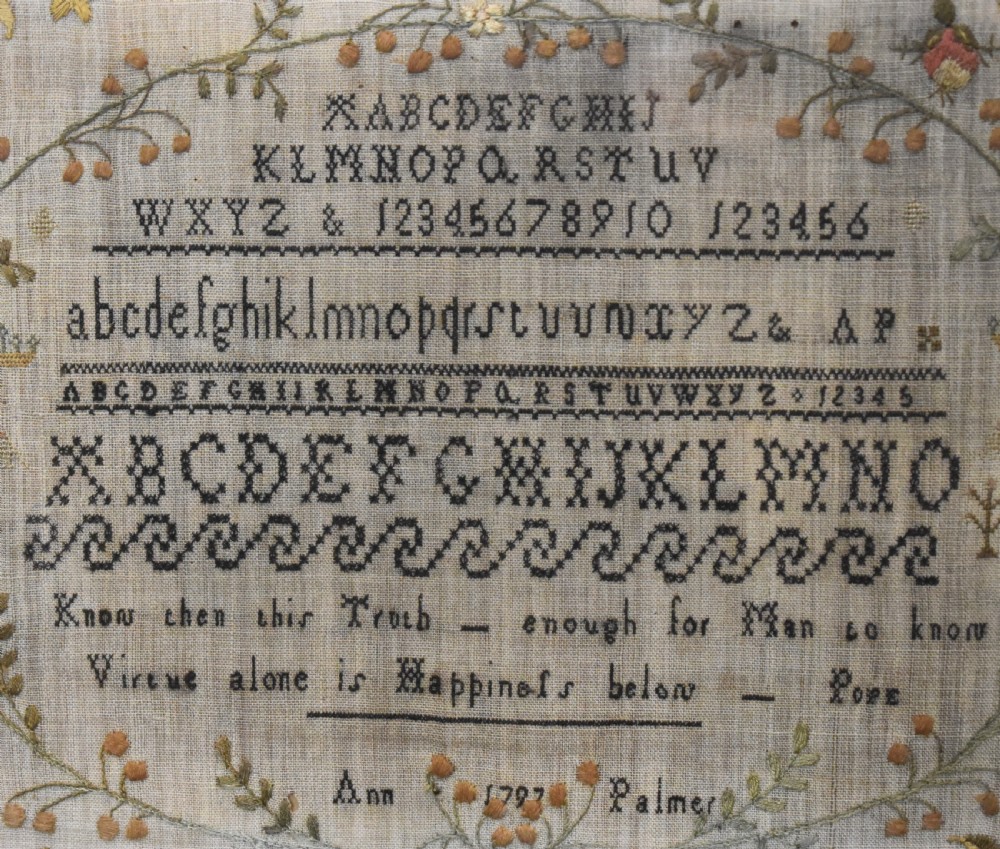 ABCDEFGHIJ
KLMNOPQRSTUV
WXYZ & 12345678910 123456
abcdefghiklmnopqrsstuvwxyz& AP
ABCDEFGHIJKLMNOPQRSTUVWXYZ 12345
ABCDEFGHIJKLMNO
Know then this Truth — enough for Man to know
Virtue alone is Happineſs below — Pope
Ann 1797 Palmer